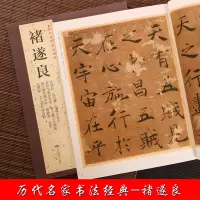 褚遂良
天有五賊見
之者昌五賊
在心施行於
天宇宙在乎
历代名家书法经典-褚遂良